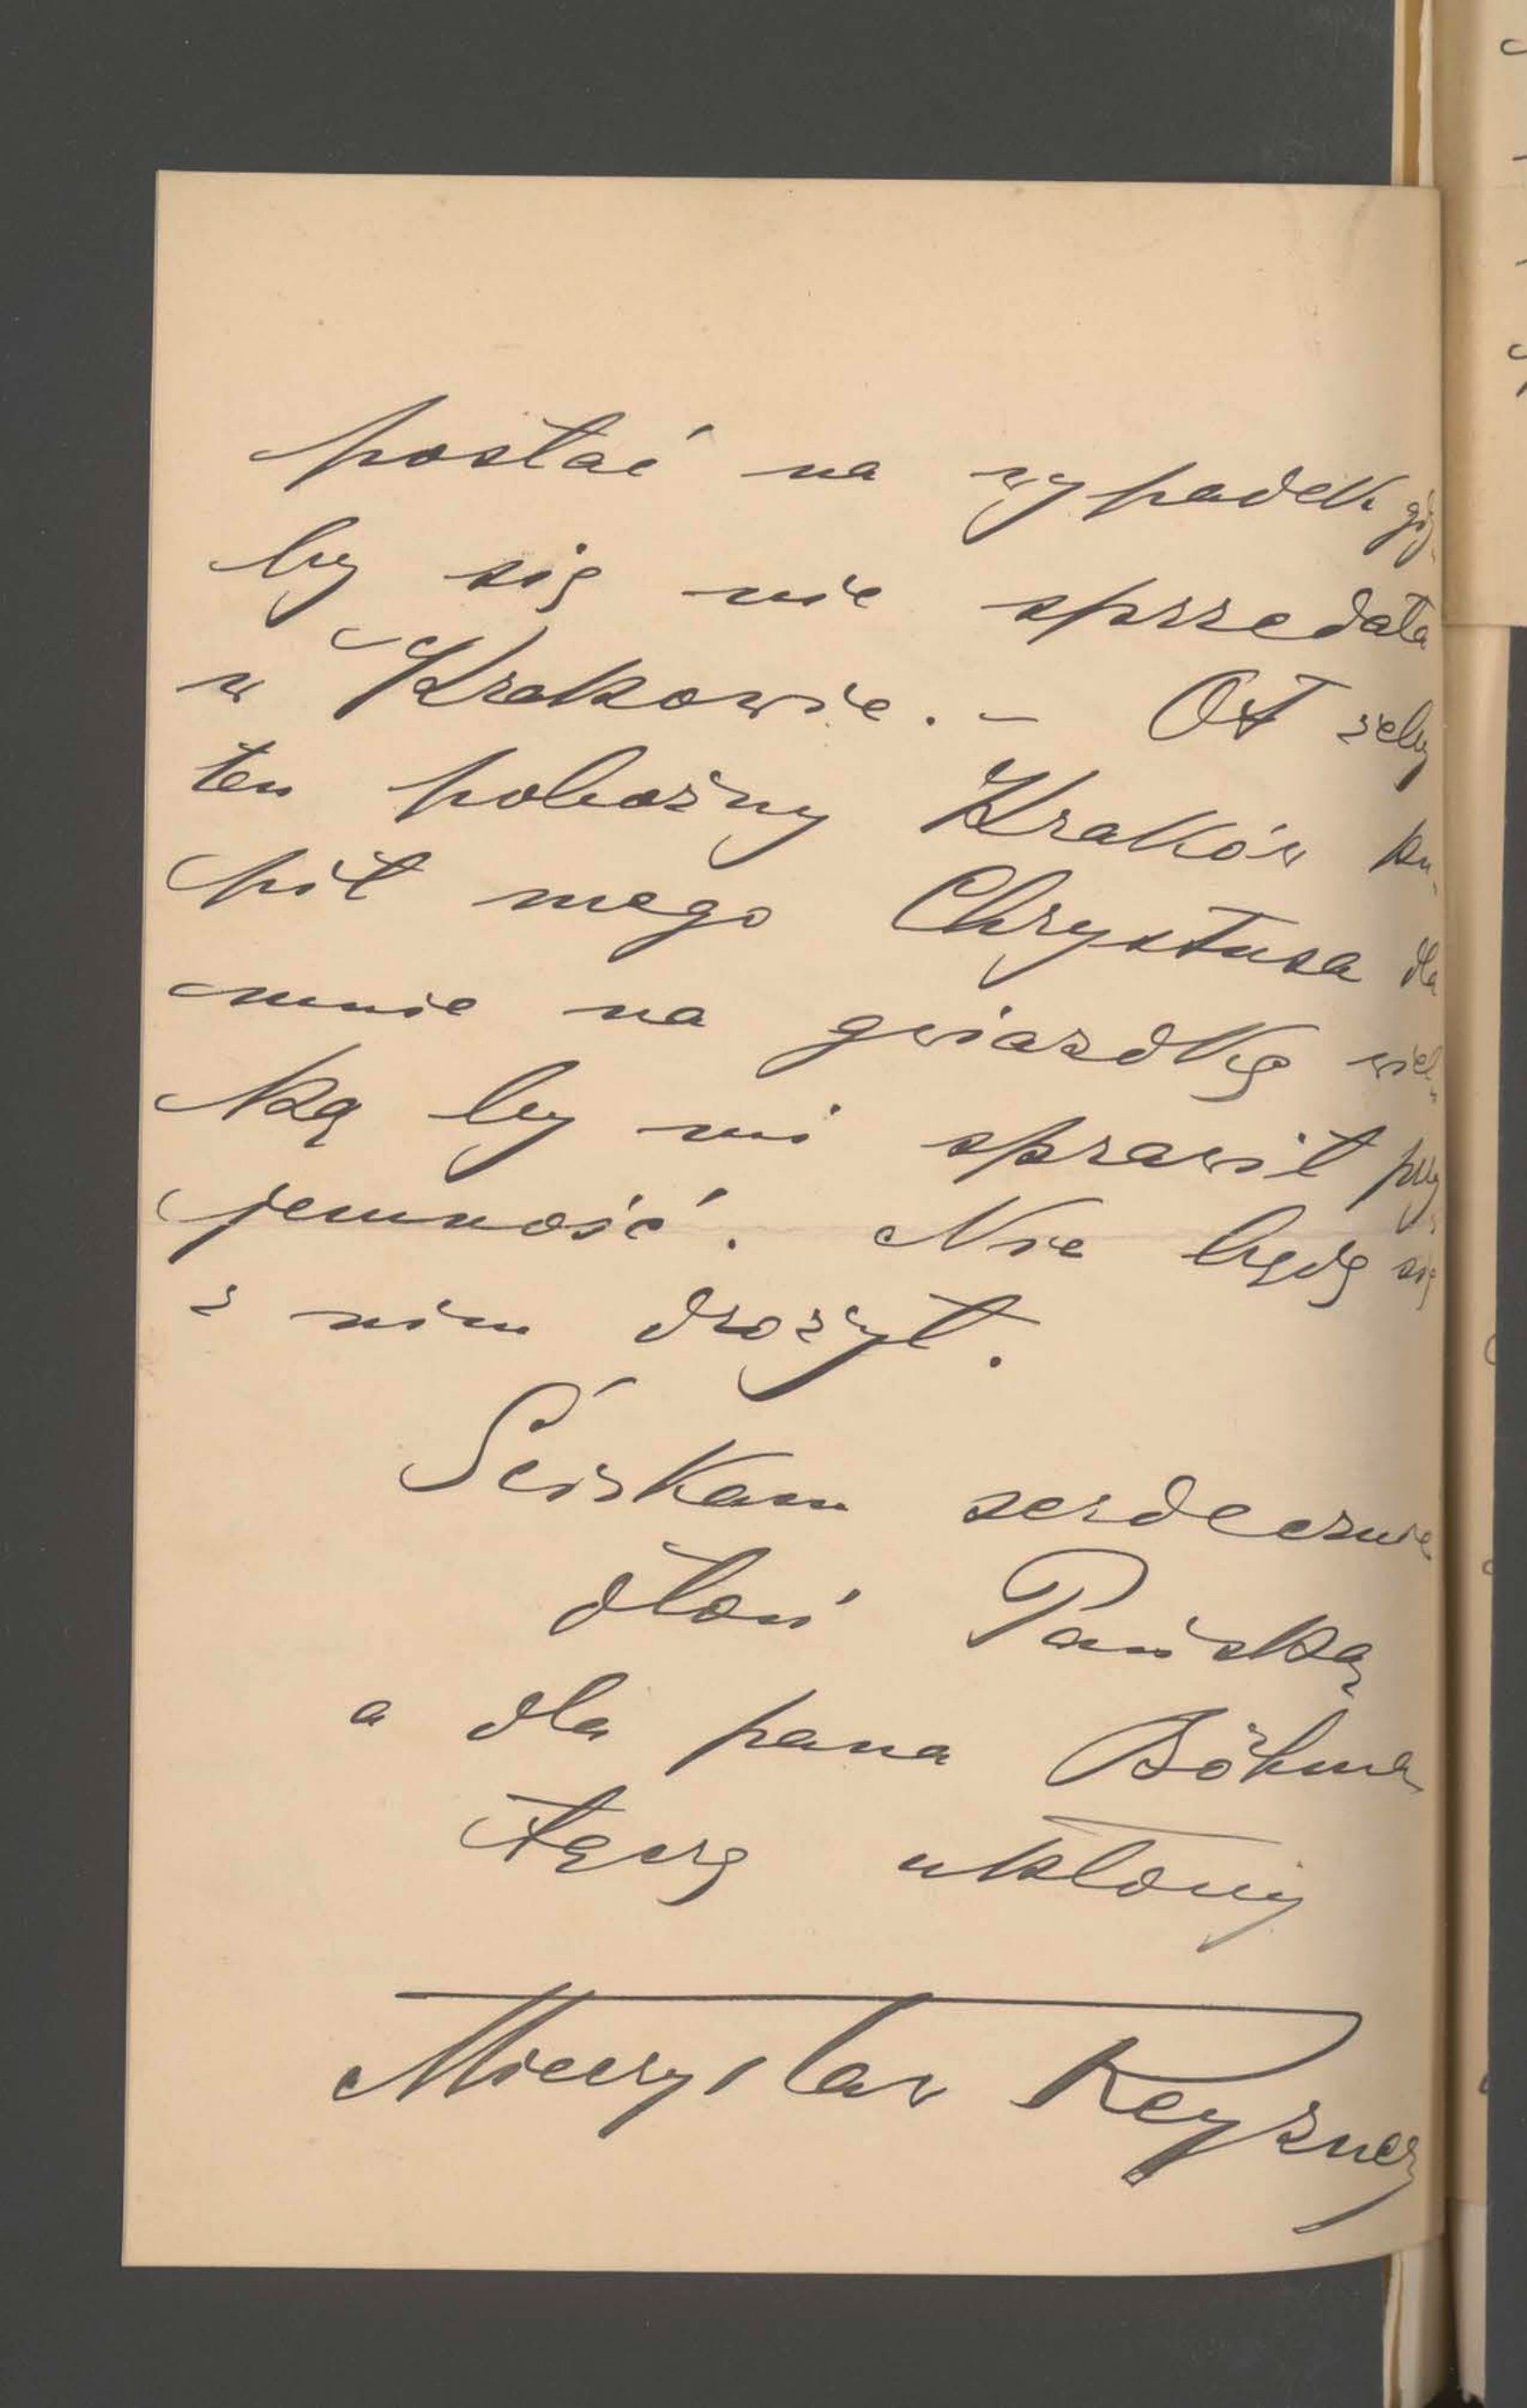 posłać na wypadek gdy-
by się nie sprzedała
w Krakowie. – Ot żeby
ten pobożny Kraków ku-
pił mego Chrystusa dla
mnie na gwiazdkę wiel-
ką by mi sprawił przy-
jemność. Nie będę się
z nim drożył.
Ściskam serdecznie
dłoń Pańską
a dla pana Böhma
łączę ukłony
Mieczysław Reyzner